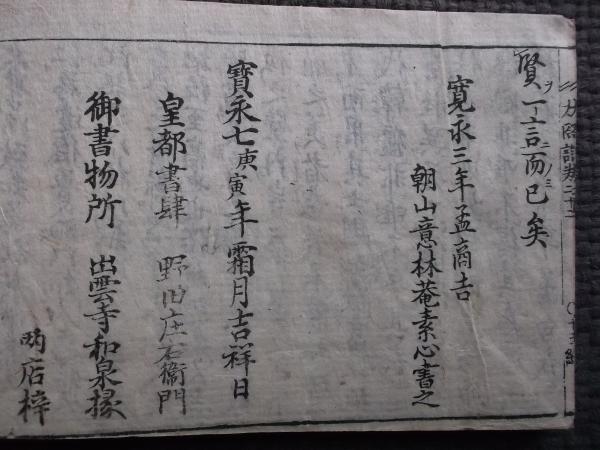 賢ヲ一言而已矣
寛永三年孟商吉
朝山意林菴素心書之
寶永七庚寅年霜月吉祥日
皇都書肆 野田庄右衞門
御書物所 出雲寺和泉掾
両店梓